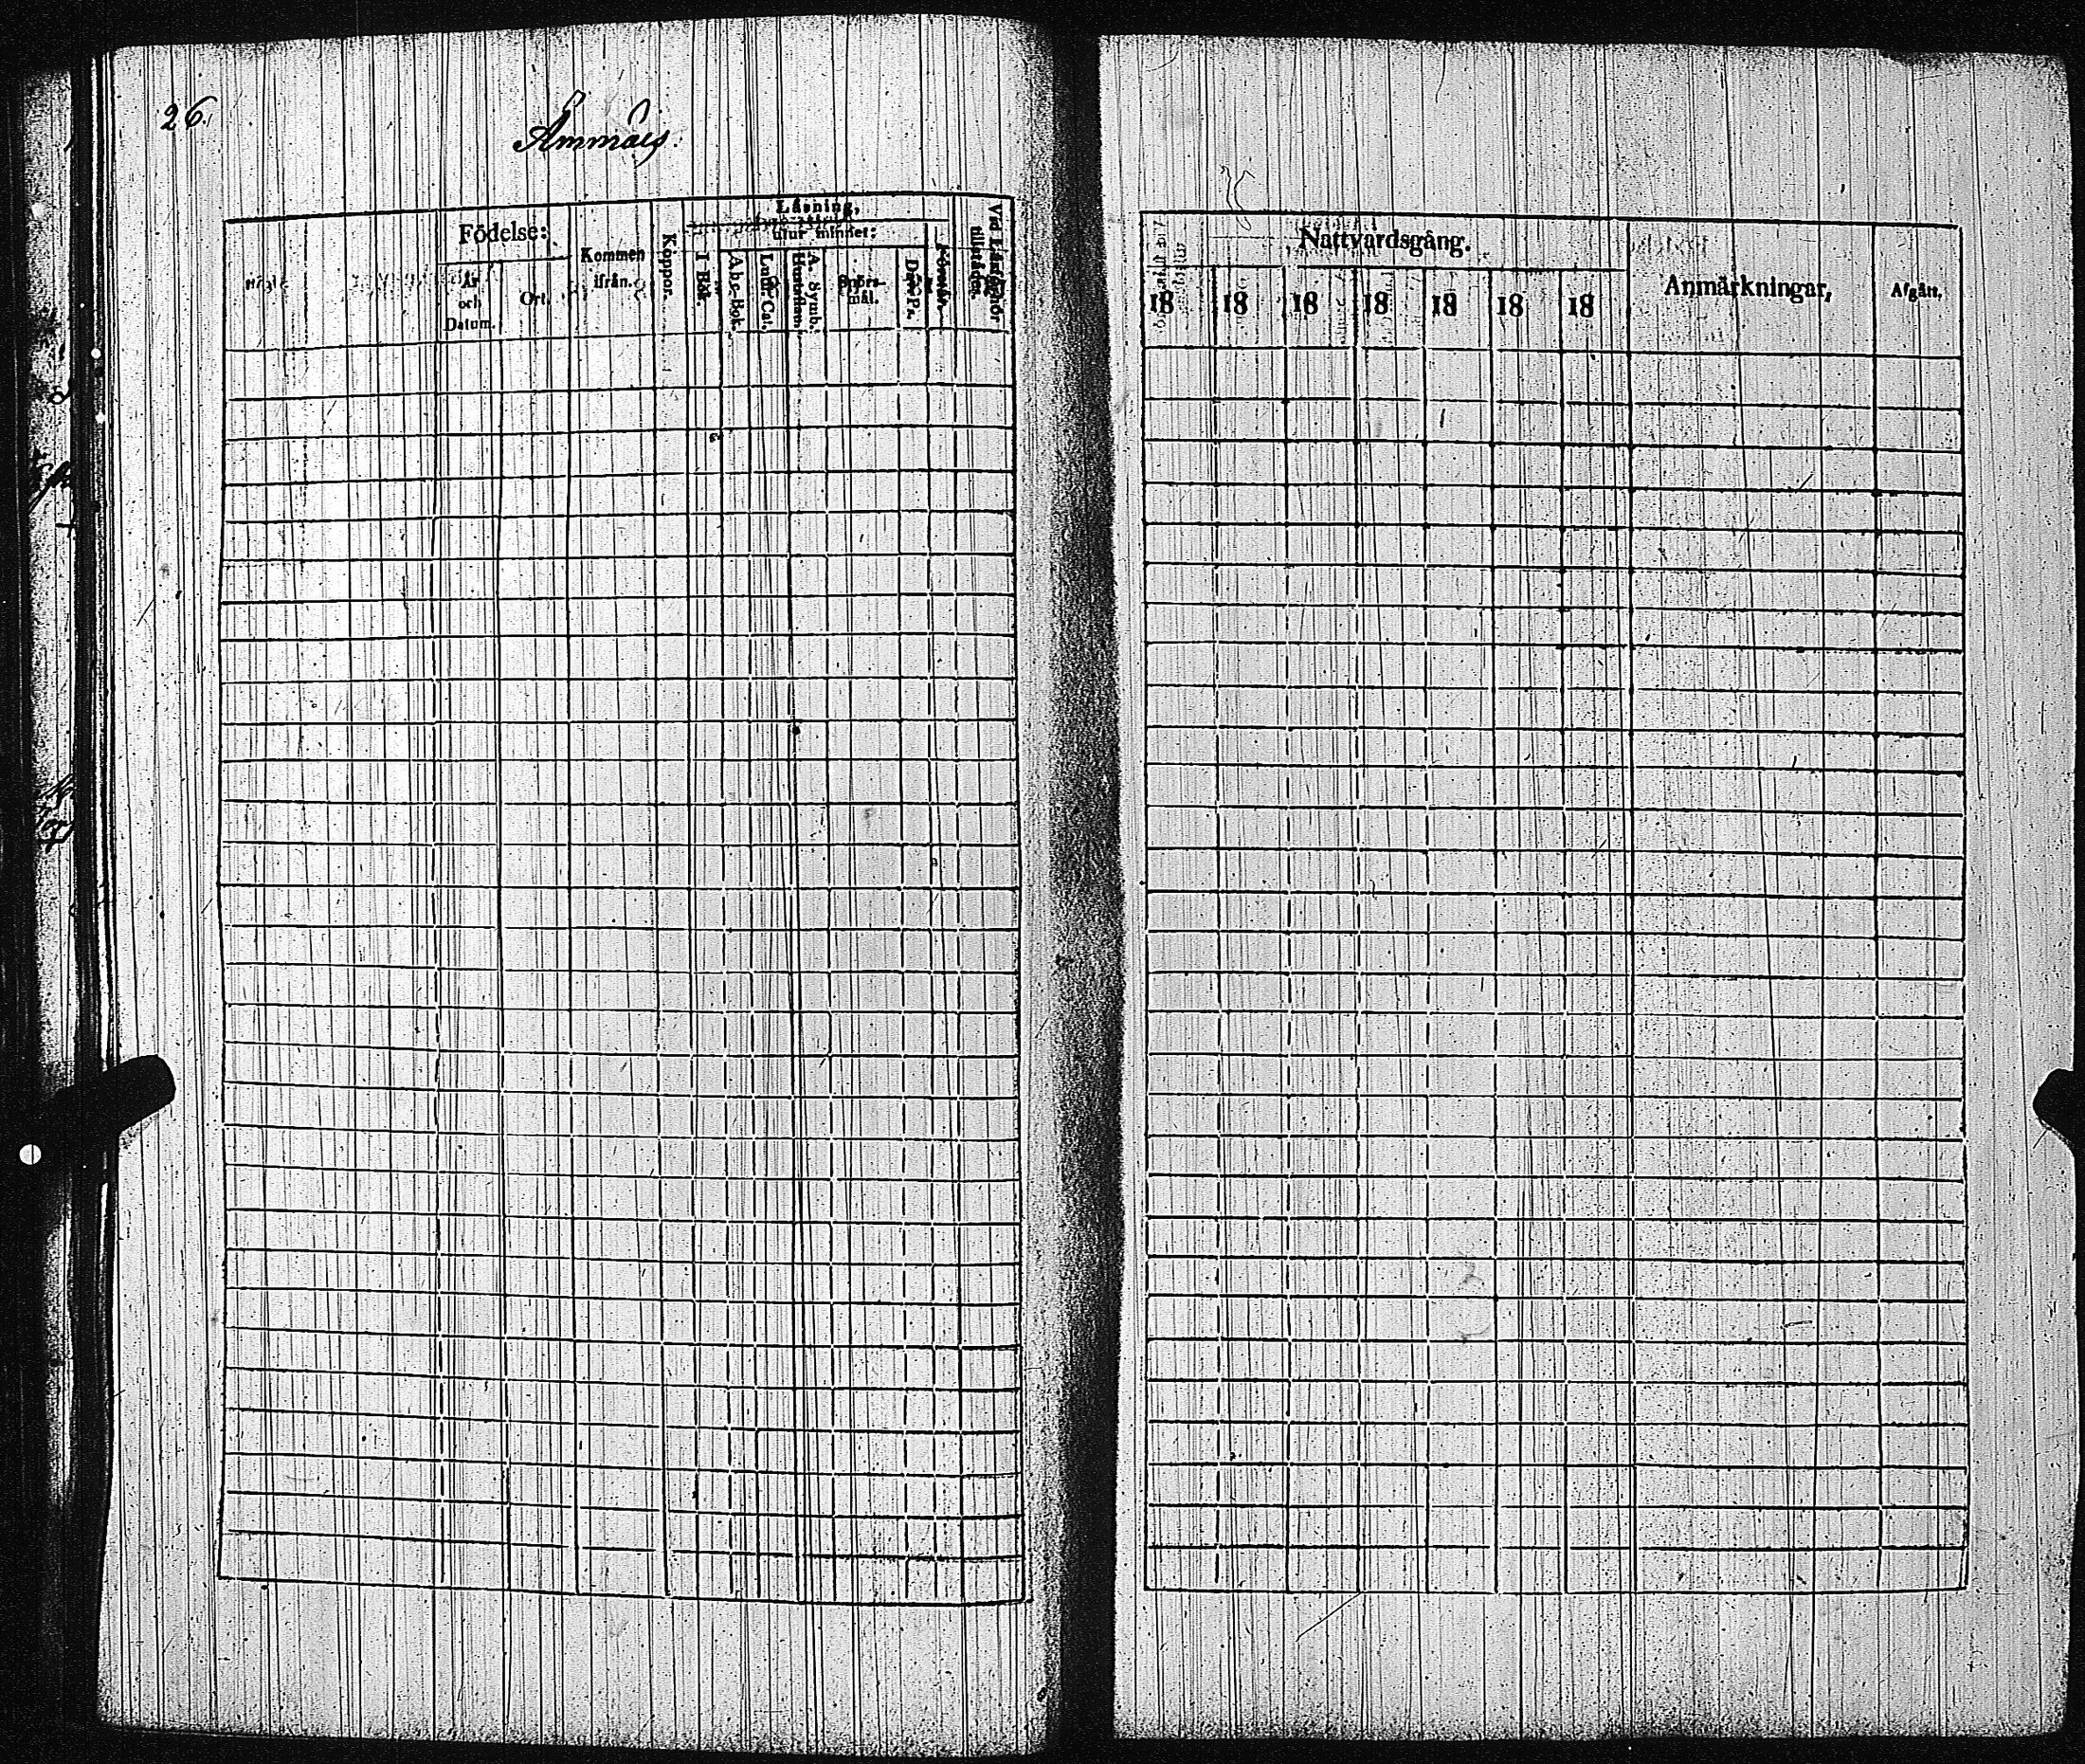 26.
Ämmäis.
Läsning,
utur minnet:
Födelse:
År och Datum.
Ort.
Kommen ifrån.
Koppor.
I Bok.
Abc-Bok.
Luth. Cat.
A. Symb. Hustaflan.
Spörs-mål.
Dav. Ps.
Nattvardsgång.
18 18 18 18 18 18 18
Anmärkningar,
Afgått.